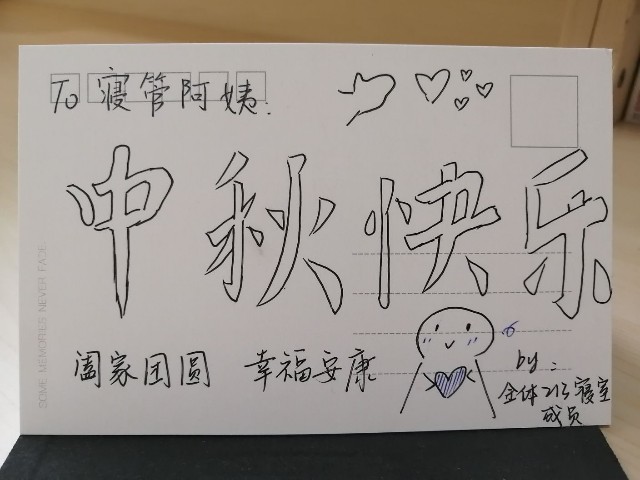 To 寝管阿姨:
中秋快乐
阖家团圆 幸福安康
by:
全体213寝室
成员
SOME MEMORIES NEVER FADE